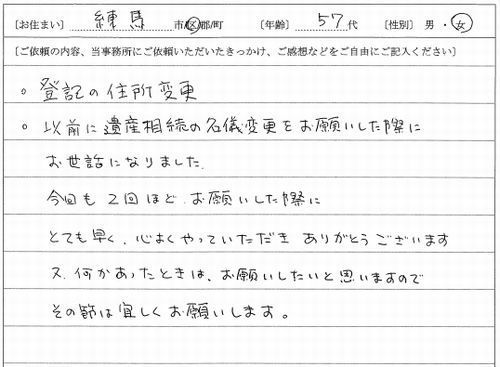 ［お住まい］ 練馬 市/区/郡/町 ［年齢］ 57 代 ［性別］ 男 ・ 女
［ご依頼の内容、当事務所にご依頼いただいたきっかけ、ご感想などをご自由にご記入ください］
○ 登記の住所変更
○ 以前に遺産相続の名儀変更をお願いした際に
お世話になりました.
今回も 2回ほど.お願いした際に
とても早く、心よくやっていただき ありがとうございます
又.何かあったときは、お願いしたいと思いますので
その節は宜しくお願いします。